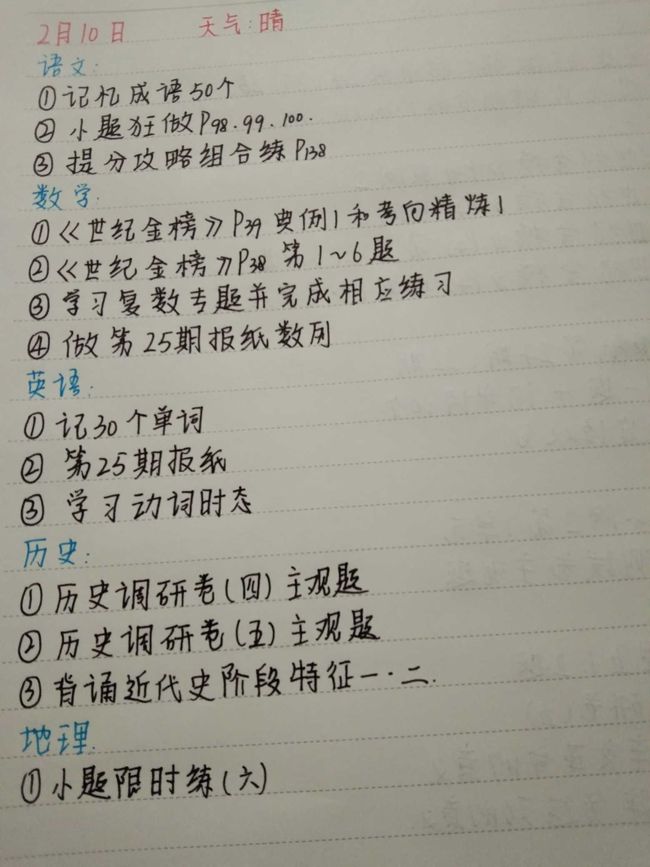 2月10日 天气:晴
语文:
①记忆成语50个
②小题狂做P98.99.100.
③提分攻略组合练P138
数学:
①《世纪金榜》P39典例1和考向精炼1
②《世纪金榜》P38第1~6题
③学习复数专题并完成相应练习
④做第25期报纸数列
英语:
①记30个单词
②第25期报纸
③学习动词时态
历史:
①历史调研卷(四)主观题
②历史调研卷(五)主观题
③背诵近代史阶段特征一·二.
地理:
①小题限时练(六)